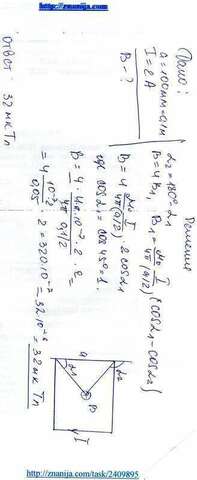 http://znanija.com
Дано:
a=100мм=0,1м
I=2A
B-?
Решение
α2=180°-α1
B=4B1, B1=μ0I/4π(a/2) (cosα1-cosα2)
B=4 μ0I/4π(a/2) · 2cosα1
где cosα1= cos45°=1.
B=4· 4π·10⁻⁷·2·2/4π 0,1/2 =
=4 10⁻⁷/0,05 · 2·2=320·10⁻⁷=32·10⁻⁶=32мкТл
Ответ: 32мкТл
a
α1
α2
B
I
http://znanija.com/task/2409895